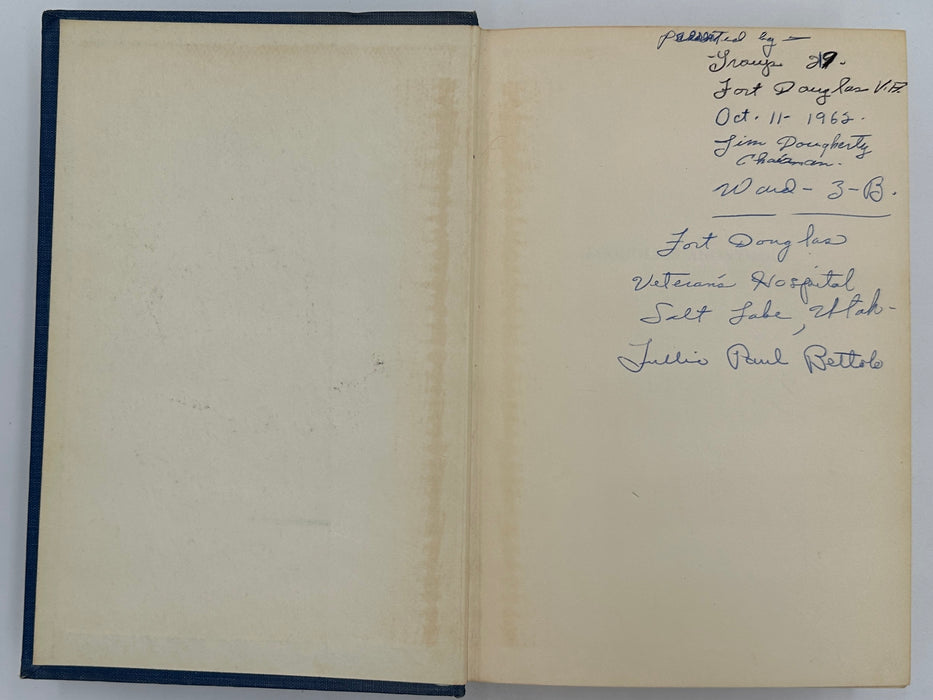 Presented by —
Group 29.
Fort Douglas V.A.
Oct. 11 - 1962.
Jim Dougherty
Chairman.
Ward - 3 - B.
Fort Douglas
Veteran's Hospital
Salt Lake, Utah -
Tullio Paul Bettolo